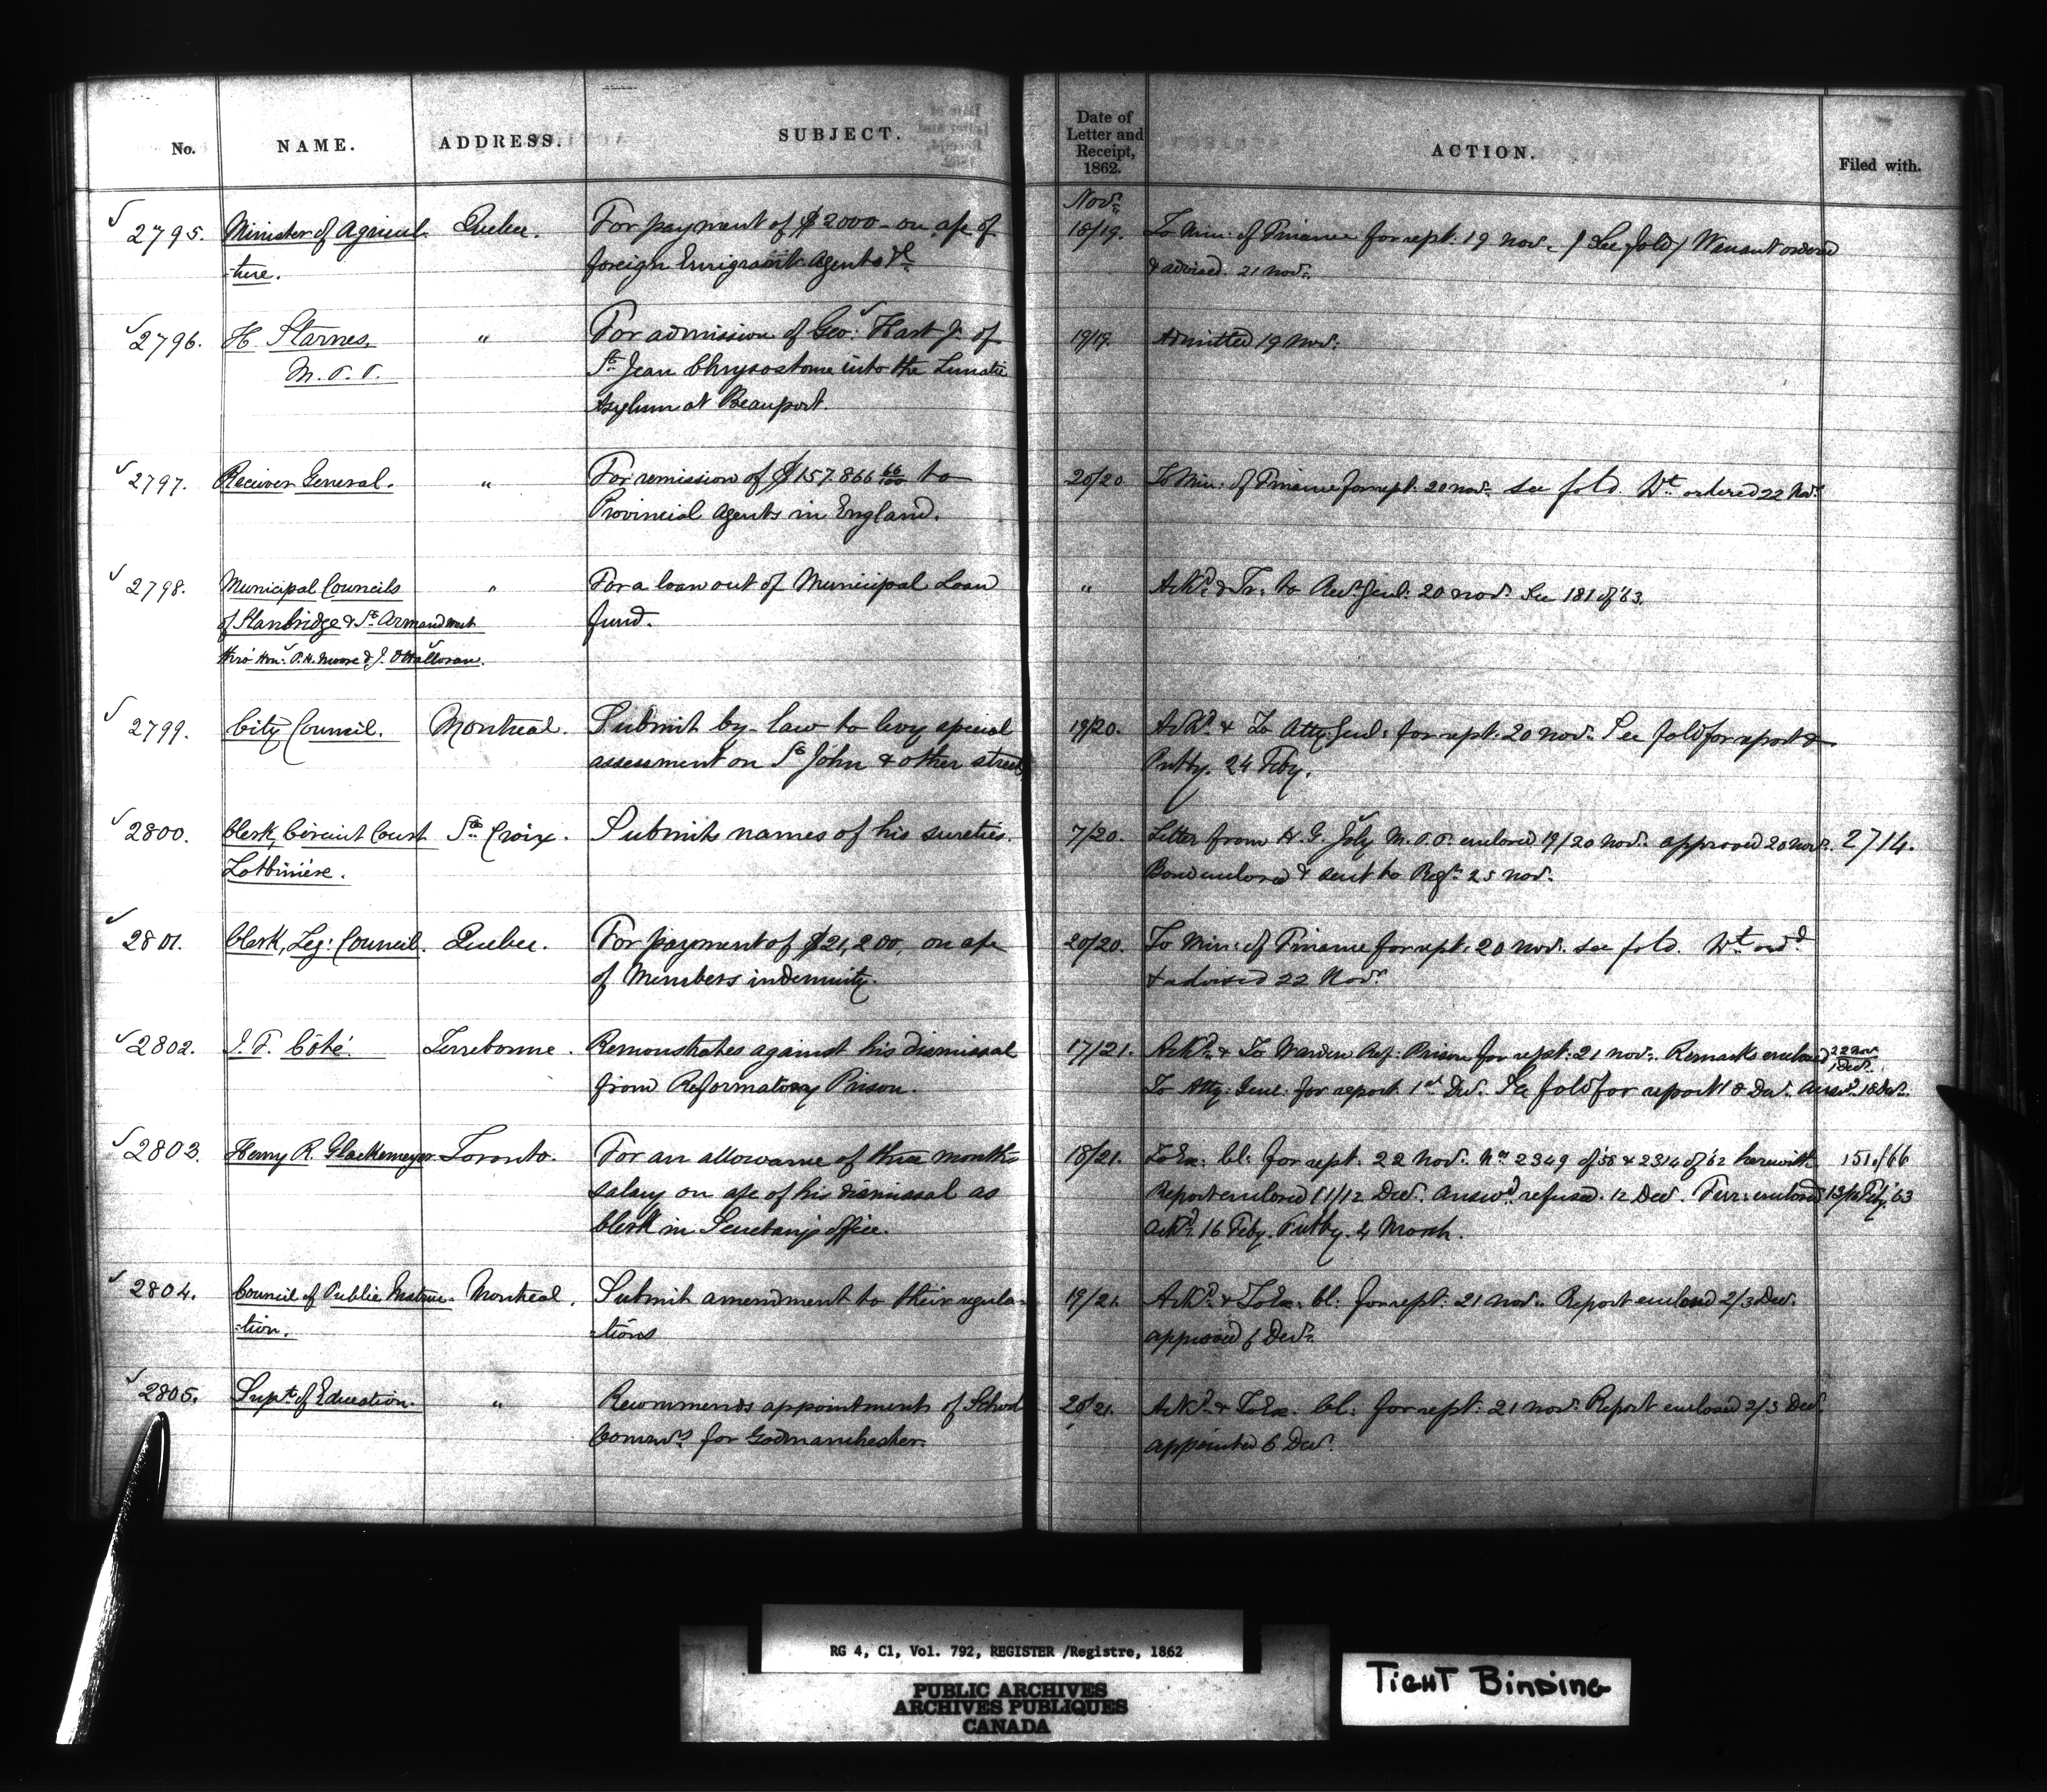 No. NAME. ADDRESS. SUBJECT. Date of Letter and Receipt, 1862. ACTION. Filed with.
Nov.
2795. Minister of Agricul- Quebec. For payment of $2000 - on a/c of 18/19. To Min: of Finance for rept: 19 Nov. (See fold) Warrant ordered
-ture. foreign Emigrant Agents &c & advised. 21 Nov.
2796. H. Starnes, " For admission of Geo: Hart Jr. of 19/19. Admitted 19 Nov.
M.P.P. St. Jean Chrysostome into the Lunatic
Asylum at Beauport.
2797. Receiver General. " For remission of $157.866 66/100 to 20/20 To Min: of Finance for rept: 20 Nov. see fold. Wt. ordered 22 Nov.
Provincial Agents in England.
2798. Municipal Councils " For a loan out of Municipal Loan " Ackd. & Tr. to Recr. Genl. 20 Nov. See 181 of '63.
of Stanbridge & St. Armand West fund.
thro' Hon: P.H. Moore & J. O'Halloran.
2799. City Council. Montreal. Submit by-law to levy special 19/20. Ackd. & To Atty: Genl: for rept: 20 Nov. See fold for report &
assessment on St. John & other streets. Futby. 24 Feby.
2800. Clerk, Circuit Court Ste. Croix. Submits names of his sureties. 7/20. Letter from H. G. Joly M.P.P. enclosed 19/20 Nov. approved 20 Nov. 2714.
Lotbinière. Bond enclosed & sent to Regr. 25 Nov.
2801. Clerk, Leg: Council. Quebec. For payment of $21,200, on a/c 20/20. To Min: of Finance for rept: 20 Nov. see fold. Wt. ordd.
of Members indemnity. & advised 22 Nov.
2802. J. F. Côté. Terrebonne. Remonstrates against his dismissal 17/21. Ackd. & To Warden Ref: Prison for rept: 21 Nov. Remarks enclosed 22 Nov. / 1 Dec.
from Reformatory Prison. To Atty: Genl: for report 1st Dec. See fold for report 18 Dec. Answd. 18 Dec.
2803. Henry R. Glackemeyer Toronto. For an allowance of three months 18/21. To Ex: Cl: for rept: 22 Nov. Nos. 2349 of '58 & 2314 of '62 herewith 151 of '66
salary on a/c of his dismissal as Report enclosed 11/12 Dec. Answd. refused. 12 Dec. Fur: enclosed Feby. '63
Clerk in Secretary's office. Ackd. 16 Feby. Futby. 4 March.
2804. Council of Public Instruc- Montreal. Submit amendment to their regula- 19/21. Ackd. & To Ex: Cl: for rept: 21 Nov. Report enclosed 2/3 Dec.
-tion. -tions approved 6 Dec.
2805. Supt. of Education. " Recommends appointment of School 20/21. Ackd. & To Ex: Cl: for rept: 21 Nov. Report enclosed 2/3 Dec.
Commrs. for Godmanchester. appointed 6 Dec.
RG 4, C1, Vol. 792, REGISTER /Registre, 1862
PUBLIC ARCHIVES
ARCHIVES PUBLIQUES
CANADA
TIGHT BINDING